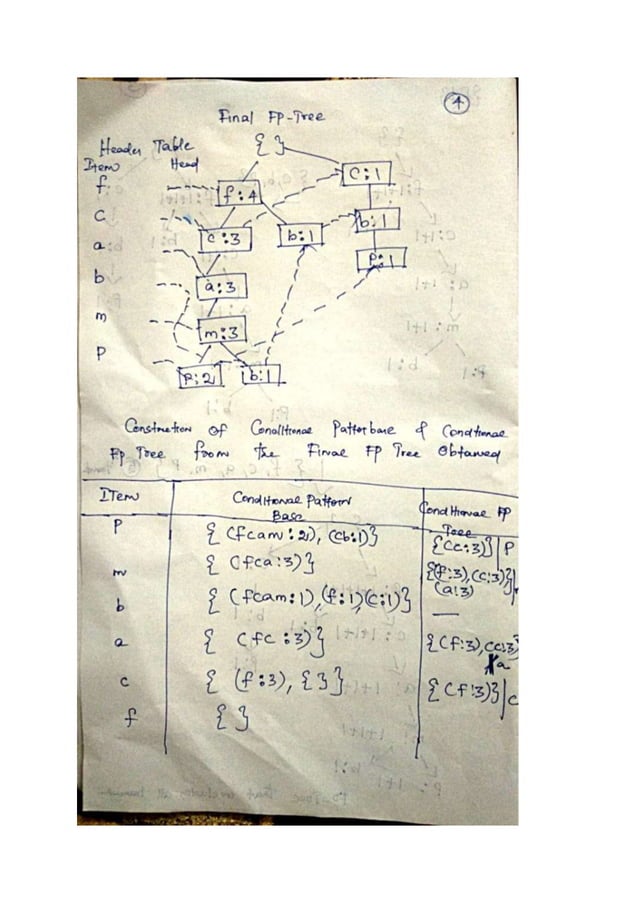 4
Final FP-Tree
Header Table
Item Head
{ }
f
f:4
c:1
c
c:3
b:1
b:1
a
p:1
b
a:3
m
m:3
P
P:2
b:1
Construction of Conditional Patternbase & Conditional
Fp Tree from the Final FP Tree Obtained
Item
Conditional Pattern Base
Conditional FP Tree
P { (fcam:2), (cb:1)} {(c:3)}|P
m { (fca:3)} {(f:3),(c:3),(a:3)}|
b { (fcam:1),(f:1)(c:1)} —
a { (fc:3)} {(f:3),(c:3)}|a
c { (f:3), { }} {(f:3)}|c
f { }